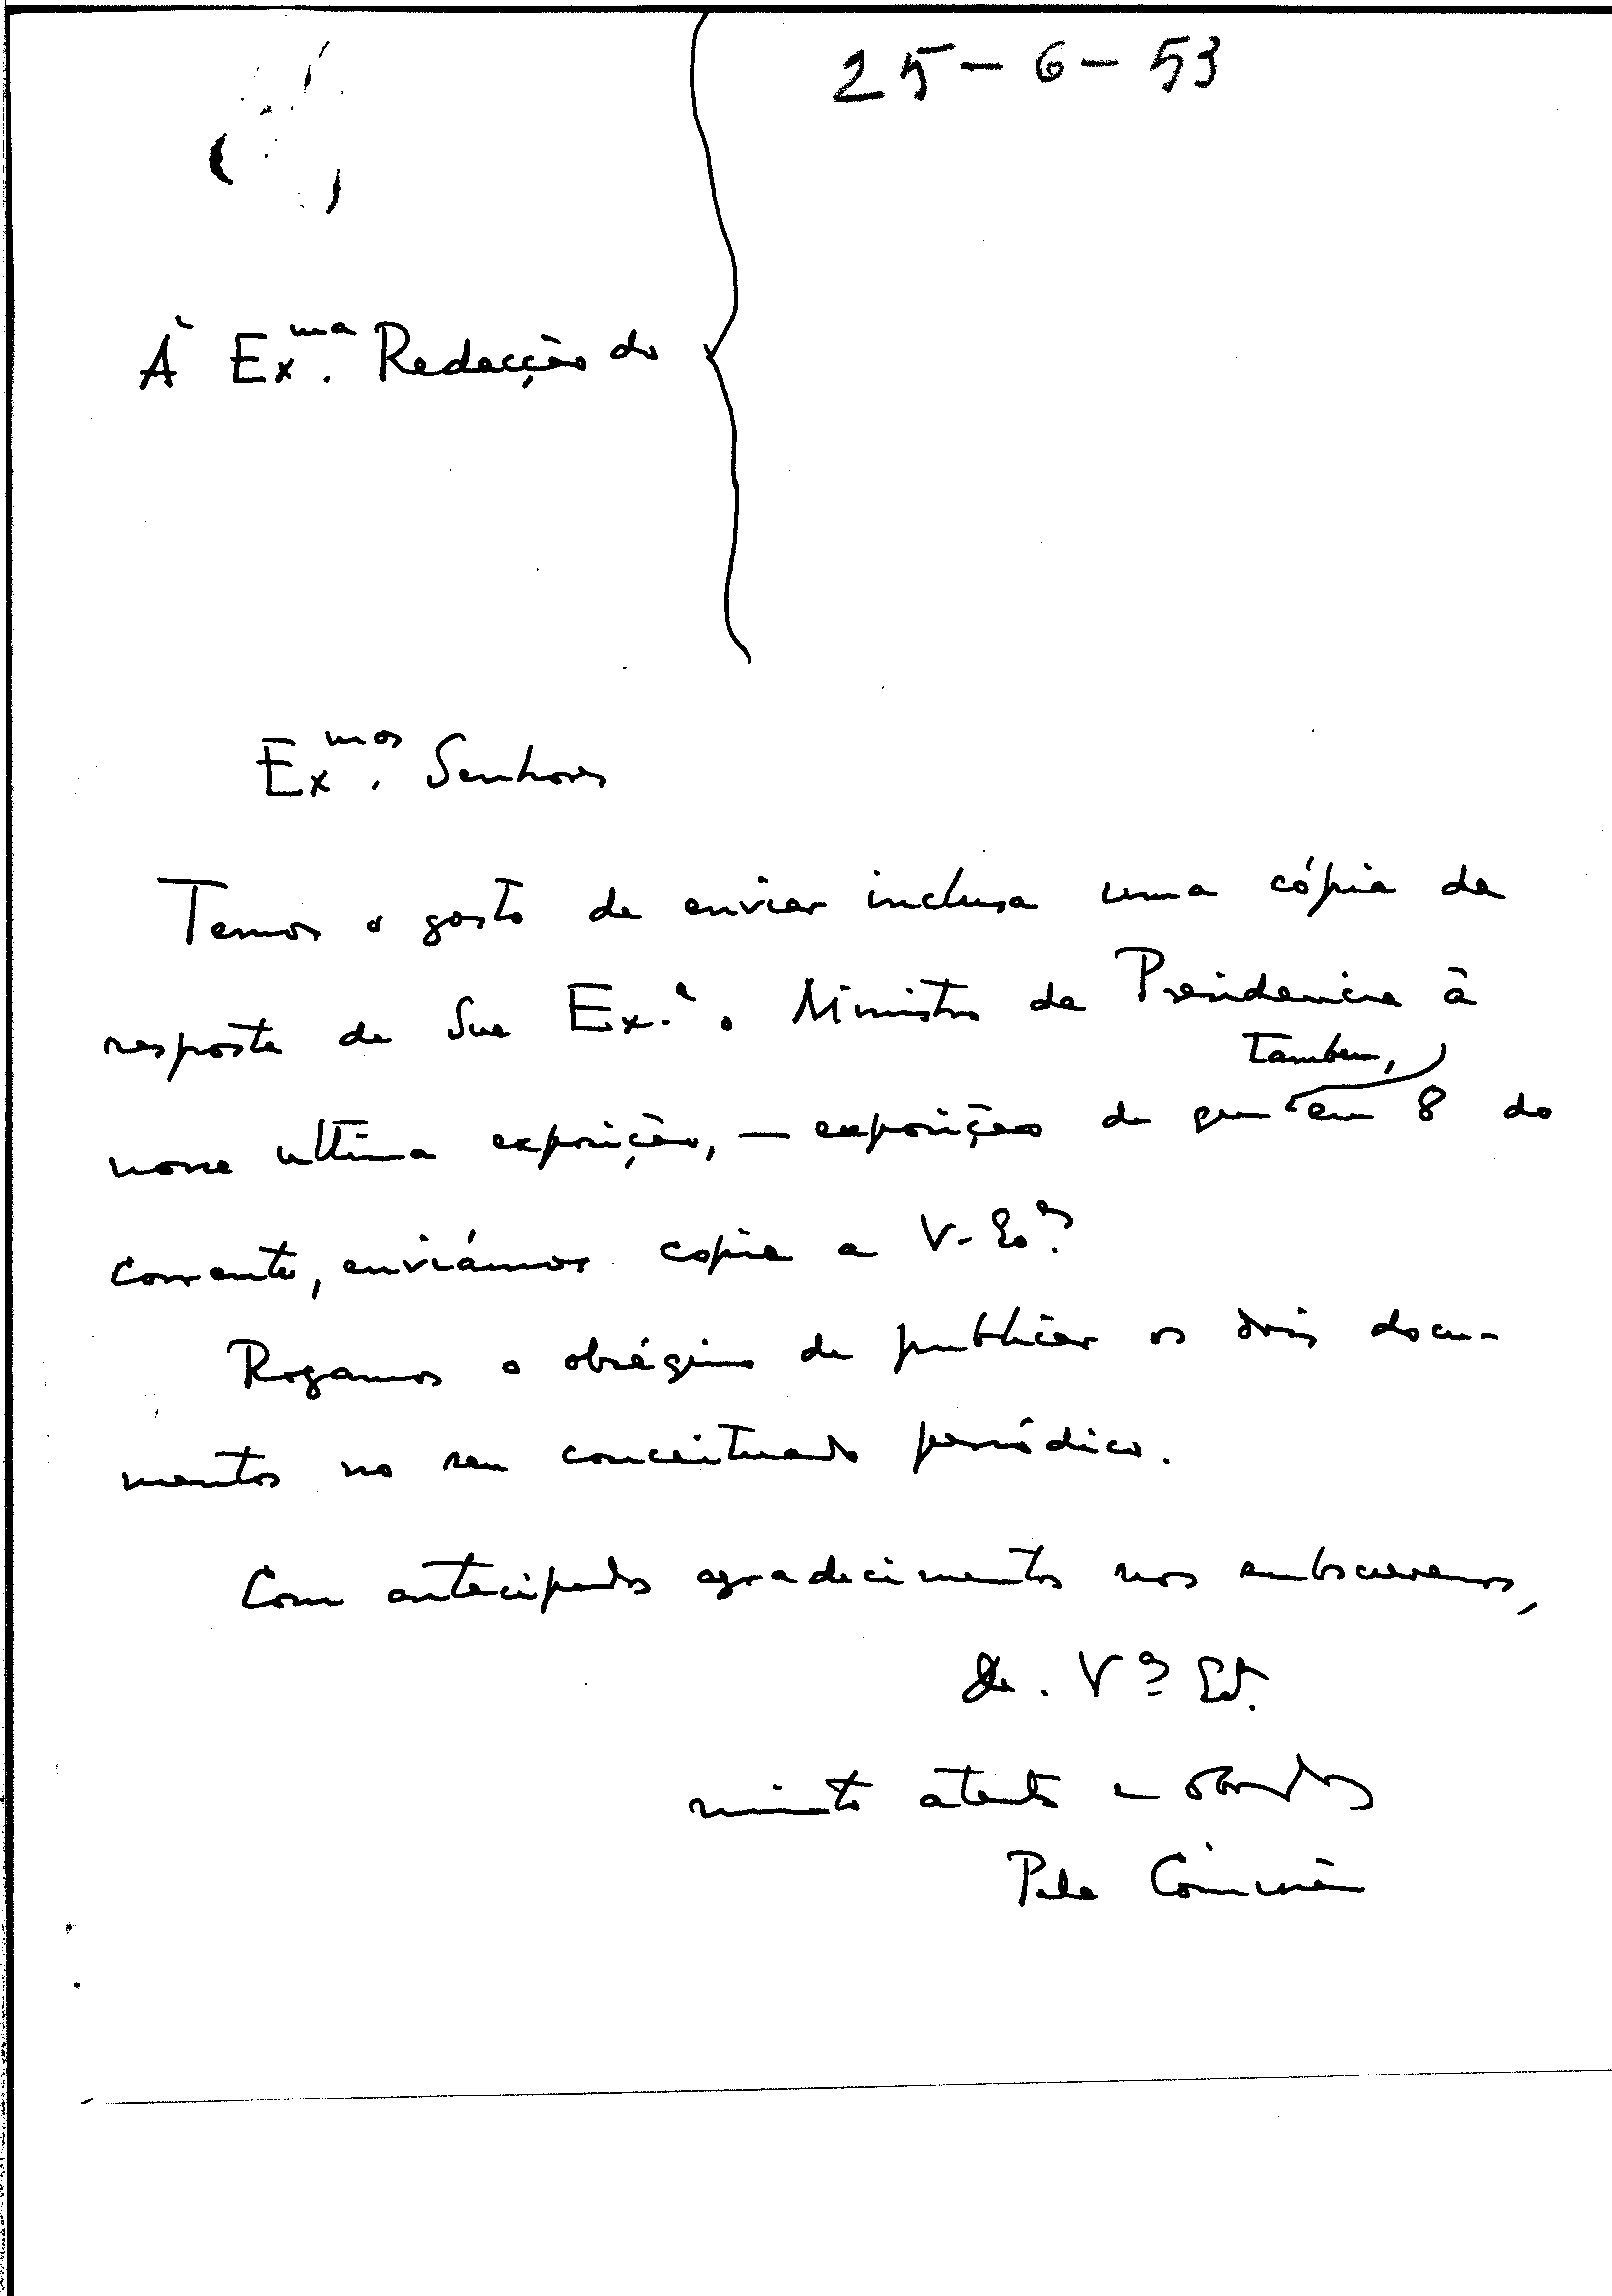 25-6-53
À Ex.ma Redacção do
Ex.mos Senhores
Temos o gosto de enviar inclusa uma cópia da
resposta de Sua Ex.ª. Ministro da Presidencia à
tambem,
nossa ultima exposição, — exposição de que em 8 do
corrente, enviámos copia a V. Ex.as
Rogamos o obséquio de publicar os dois docu-
mentos no seu conceituado periódico.
Com antecipados agradecimentos nos subscrevemos,
de V.as Ex.as
muito atentos e obrigados
Pela Comissão